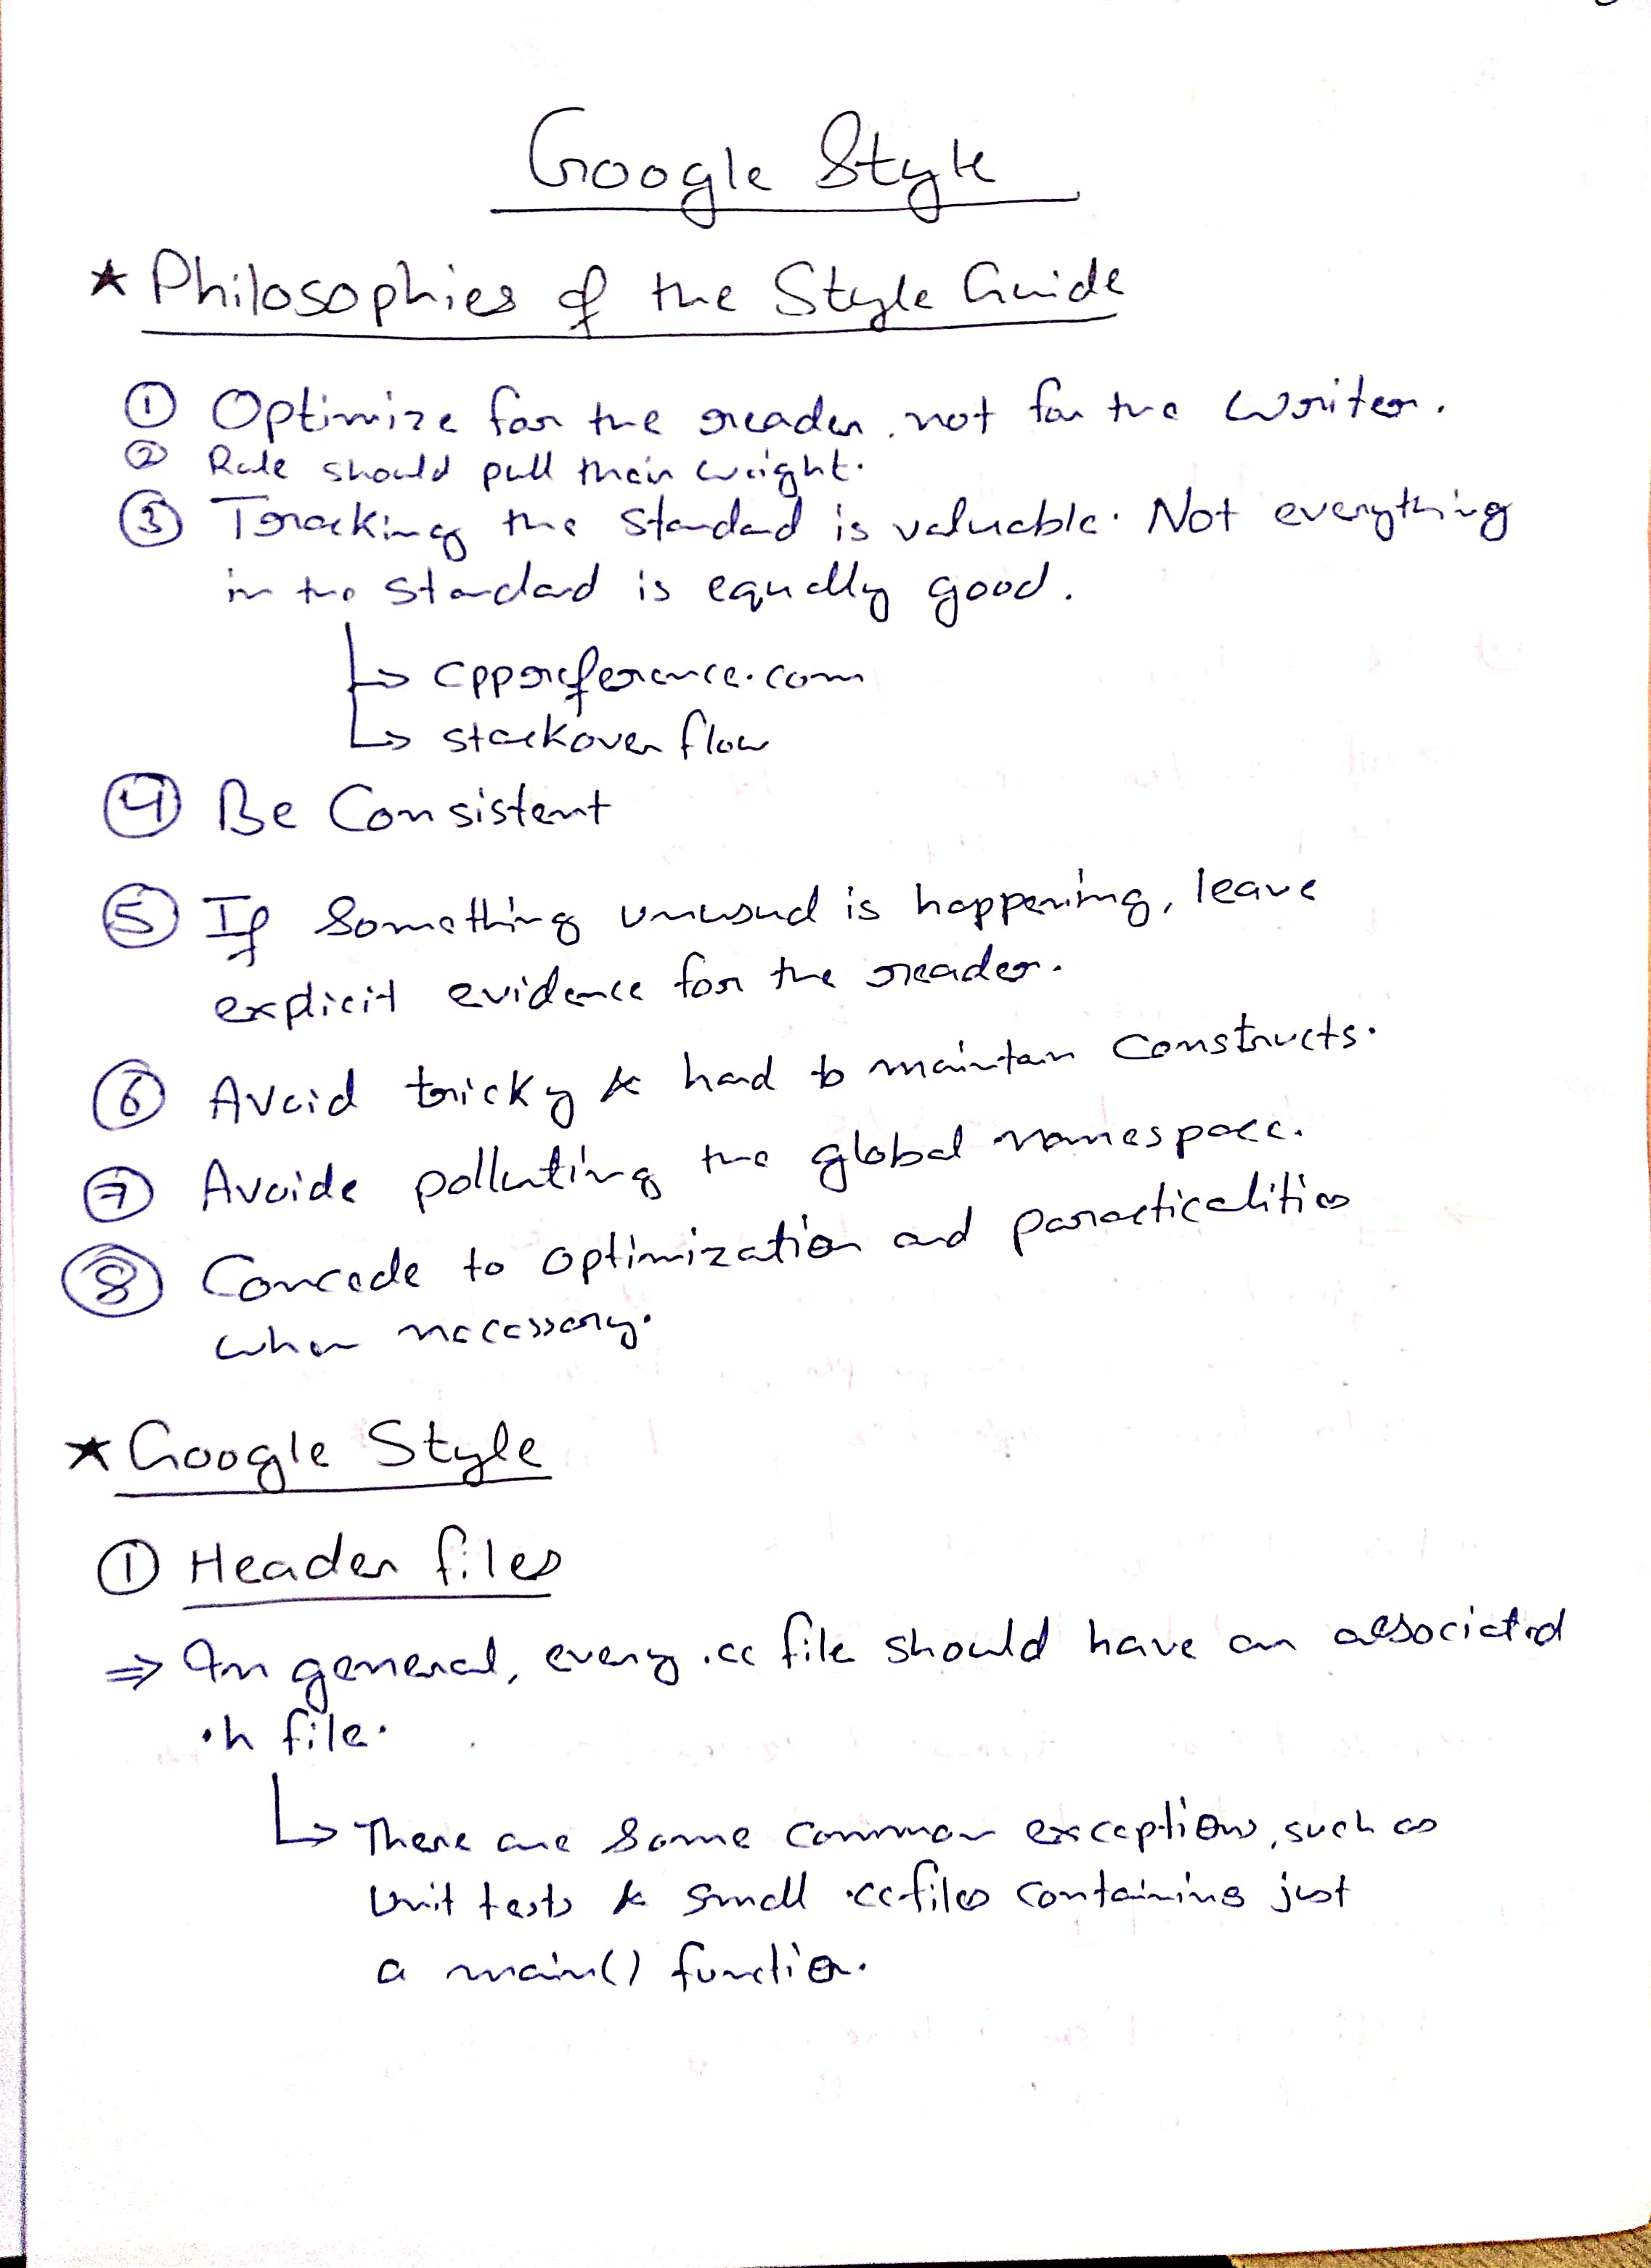 Google Style
★ Philosophies of the Style Guide
① Optimize for the reader, not for the writer.
② Rule should pull their weight.
③ Tracking the standard is valuable. Not everything
in the standard is equally good.
↳ cppreference.com
↳ stackoverflow
④ Be Consistent
⑤ If Something unusual is happening, leave
explicit evidence for the reader.
⑥ Avoid tricky & hard to maintain constructs.
⑦ Avoide polluting the global namespace.
⑧ Concede to optimization and paracticalities
when necessary.
★ Google Style
① Header files
⇒ In general, every .cc file should have an associated
.h file.
↳ There are some common exceptions, such as
unit tests & small .cc files containing just
a main() function.